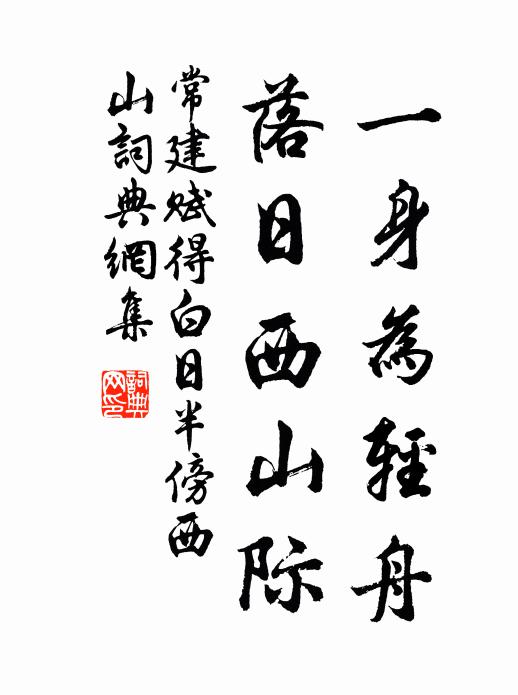 一身為輕舟
落日西山际
常建賦得白日半傍西
山詞典網集
詞典
网印